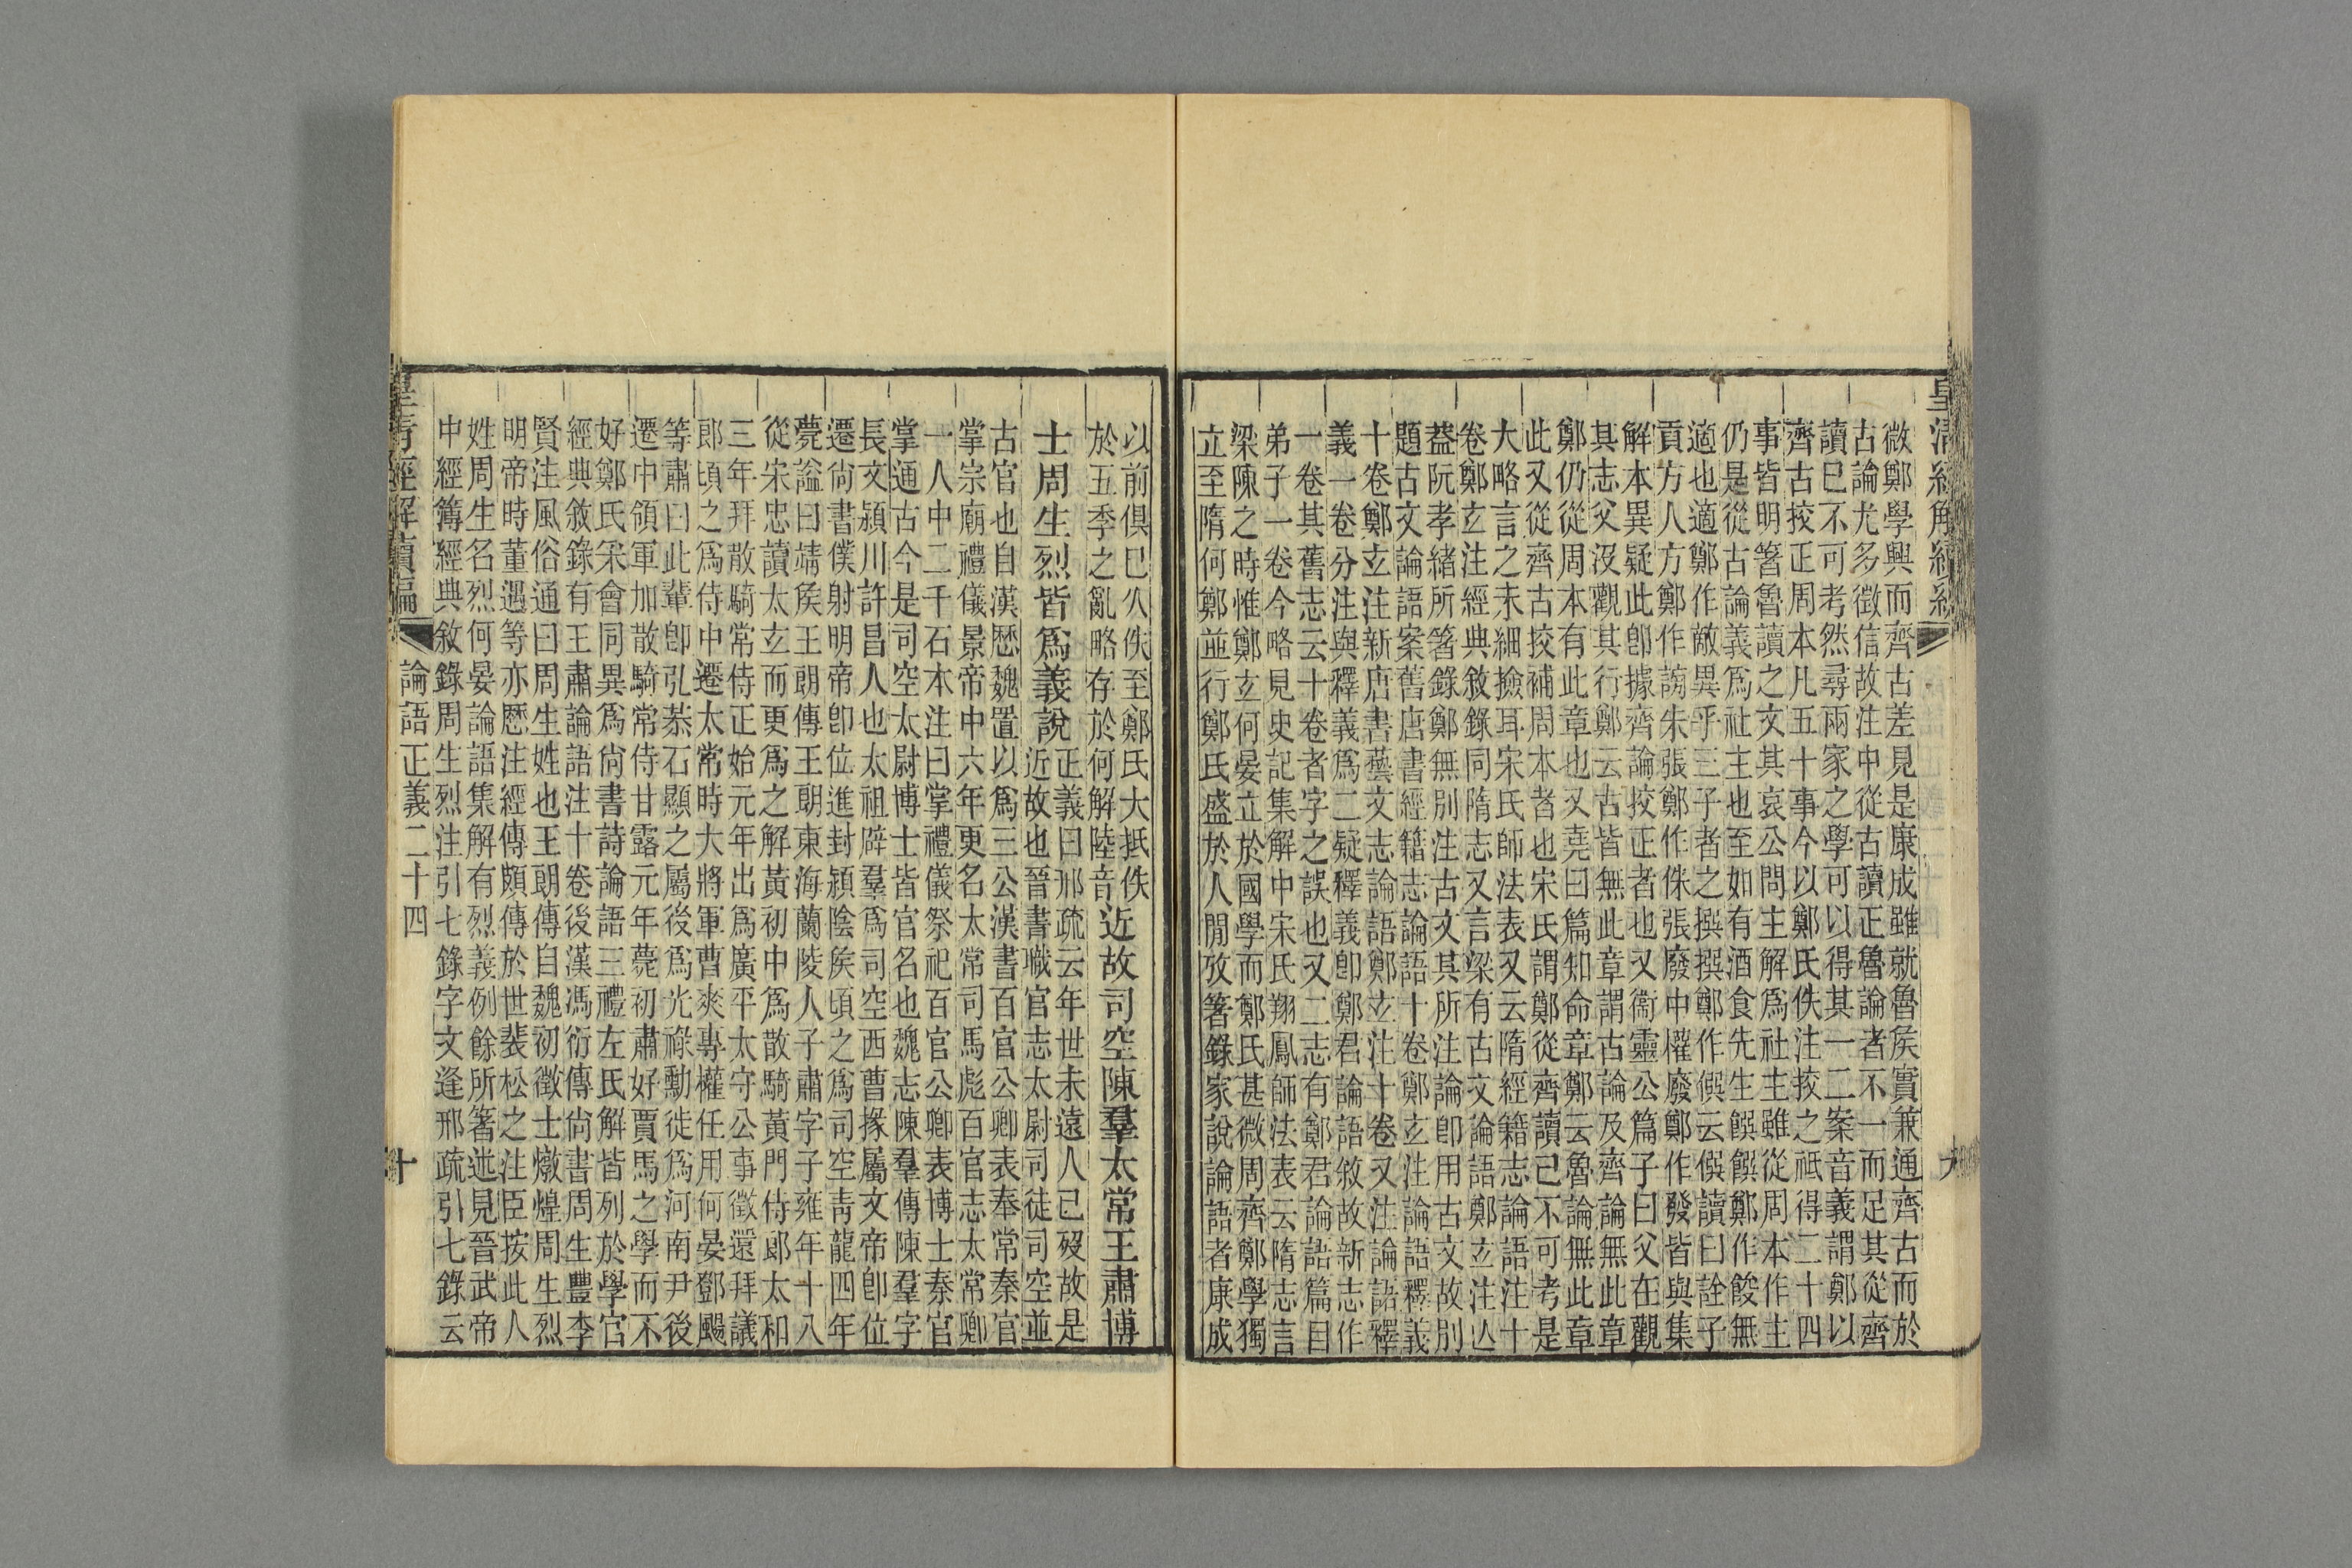 皇清經解續編
微鄭學興而齊古差見是康成雖就魯矦實兼通齊古而於
古論尤多徵信故注中從古讀正魯論者不一而足其從齊
讀巳不可考然尋兩家之學可以得其一二案音義謂鄭以
齊古挍正周本凡五十事今以鄭氏佚注挍之祇得二十四
事皆明箸魯讀之文其哀公問主解爲社主雖從周本作主
仍是從古論義爲社主也至如有酒食先生饌饌鄭作餕無
適也適鄭作敵異乎三子者之撰撰鄭作僎云僎讀曰詮子
貢方人方鄭作謗朱張鄭作侏張廢中權廢鄭作發皆與集
解本異疑此卽據齊論挍正者也又衞靈公篇子曰父在觀
其志父沒觀其行鄭云古皆無此章謂古論及齊論無此章
鄭仍從周本有此章也又堯曰篇知命章鄭云魯論無此章
此又從齊古挍補周本者也宋氏謂鄭從齊讀已不可考是
大略言之未細撿耳宋氏師法表又云隋經籍志論語注十
卷鄭玄注經典敘錄同隋志又言梁有古文論語鄭玄注亾
葢阮孝緒所箸錄鄭無別注古文其所注論卽用古文故別
題古文論語案舊唐書經籍志論語十卷鄭玄注論語釋義
十卷鄭玄注新唐書藝文志論語鄭玄注十卷又注論語釋
義一卷分注與釋義爲二疑釋義卽鄭君論語敘故新志作
一卷其舊志云十卷者字之誤也又二志有鄭君論語篇目
弟子一卷今略見史記集解中宋氏翔鳳師法表云隋志言
梁陳之時惟鄭玄何晏立於國學而鄭氏甚微周齊鄭學獨
立至隋何鄭並行鄭氏盛於人閒攷箸錄家說論語者康成
以前俱巳久佚至鄭氏大抵佚
於五季之亂略存於何解陸音近故司空陳羣太常王肅博
士周生烈皆爲義說
正義曰邢疏云年世未遠人已歿故是
近故也晉書職官志太尉司徒司空並
古官也自漢歷魏置以爲三公漢書百官公卿表奉常秦官
掌宗廟禮儀景帝中六年更名太常司馬彪百官志太常卿
一人中二千石本注曰掌禮儀祭祀百官公卿表博士秦官
掌通古今是司空太尉博士皆官名也魏志陳羣傳陳羣字
長文潁川許昌人也太祖辟羣爲司空西曹掾屬文帝卽位
遷尙書僕射明帝卽位進封潁陰矦頃之爲司空靑龍四年
薨諡曰靖矦王朗傳王朗東海蘭陵人子肅字子雍年十八
從宋忠讀太玄而更爲之解黃初中爲散騎黃門侍郞太和
三年拜散騎常侍正始元年出爲廣平太守公事徵還拜議
郞頃之爲侍中遷太常時大將軍曹爽專權任用何晏鄧颺
等肅曰此輩卽弘恭石顯之屬後爲光祿勳徙爲河南尹後
遷中領軍加散騎常侍甘露元年薨初肅好賈馬之學而不
好鄭氏采會同異爲尙書詩論語三禮左氏解皆列於學官
經典敘錄有王肅論語注十卷後漢馮衍傳尙書周生豐李
賢注風俗通曰周生姓也王朗傳自魏初徵士燉煌周生烈
明帝時董遇等亦歷注經傳頗傳於世裴松之注臣按此人
姓周生名烈何晏論語集解有烈義例餘所箸述見晉武帝
中經簿經典敘錄周生烈注引七錄字文逢邢疏引七錄云
皇淸經解續編 論語正義二十四 十